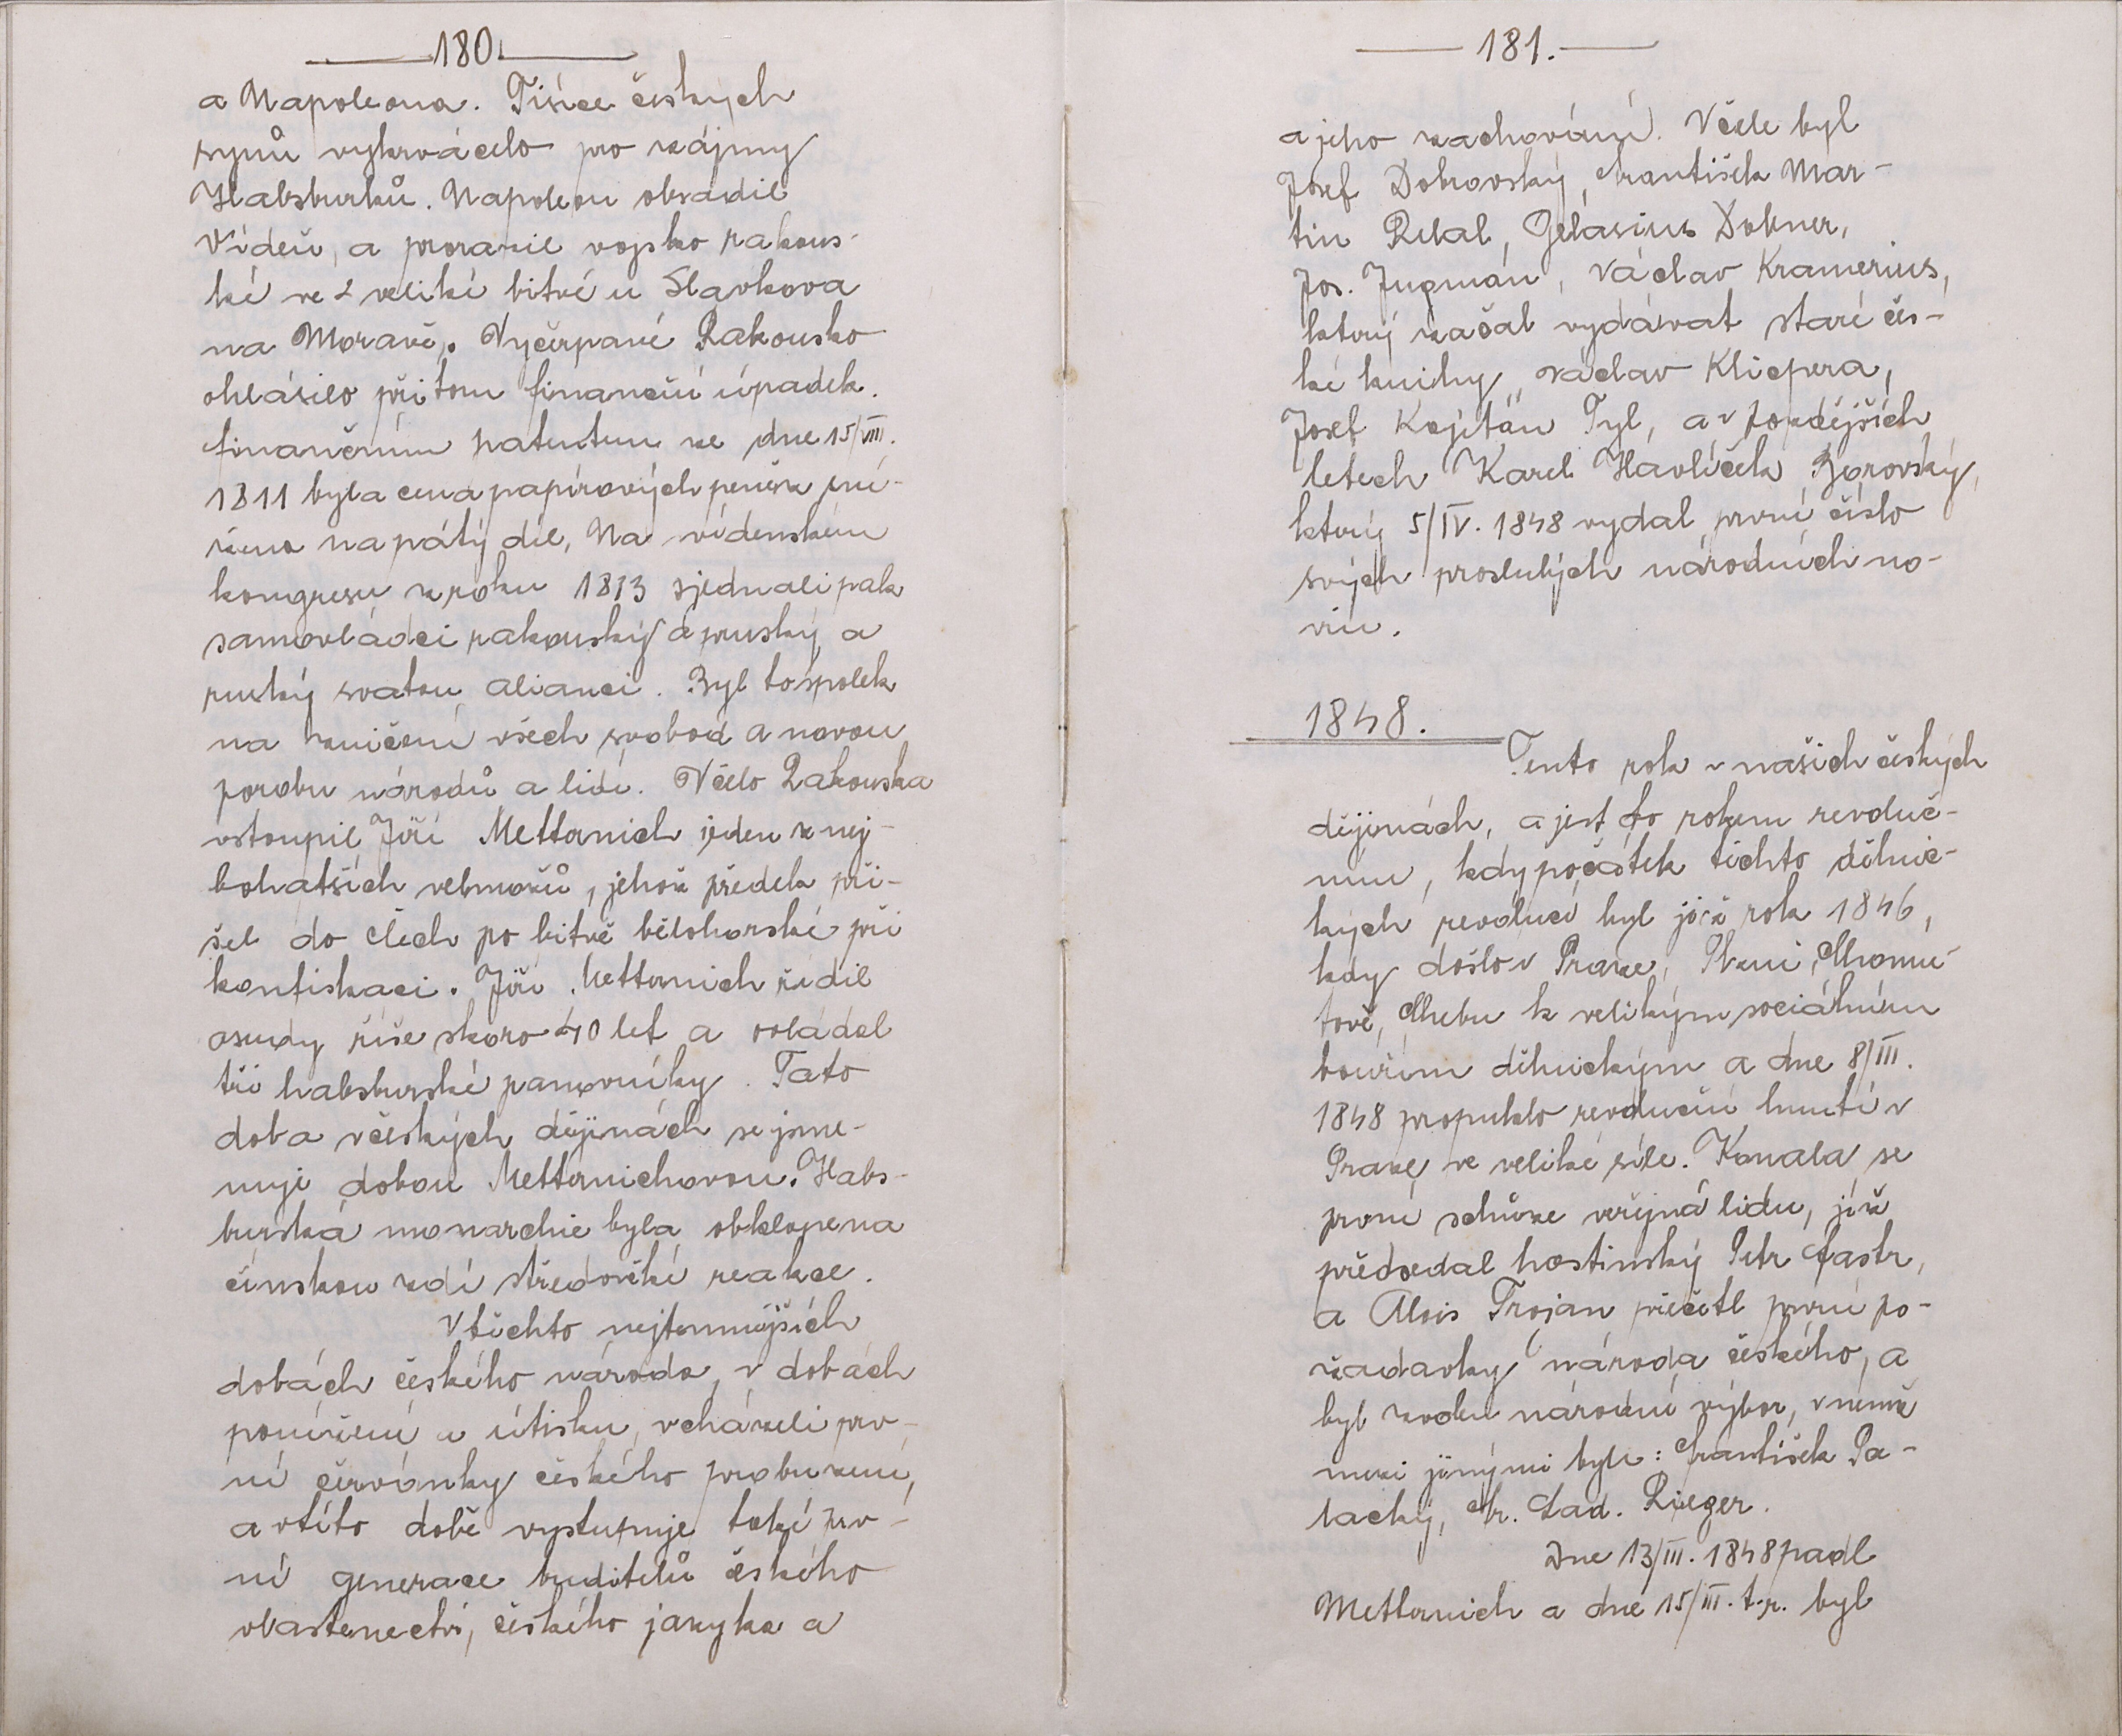 180.
a Napoleona. Tisíce českých
synů vykrvácelo pro zájmy
Habsburků. Napoleon obsadil
Vídeň, a prorazil vojsko rakous-
ké ve veliké bitvě u Slavkova
na Moravě. Vyčerpané Rakousko
ohlásilo při tom finanční úpadek.
finančním patentem ze dne 15/VIII.
1811 byla cena papírových peněz sní-
žena na pátý díl, Na vídenském
kongresu z roku 1813 sjednali pak
samovládci rakouský a pruský a
ruský svatou alianci. Byl to spolek
na zničení všech svobod a novou
porobu národů a lidí. V čelo Rakouska
vstoupil Jiří Metternich jeden z nej-
bohatších velmožů, jehož předek při-
šel do Čech po bitvě bělohorské při
konfiskaci. Jiří Metternich řídil
osudy říše skoro 40 let a ovládal
tři habsburské panovníky. Tato
doba v českých dějinách se jme-
nuje dobou Metternichovou. Habs-
burská monarchie byla obklopena
čínskou zdí středověké reakce.
V těchto nejtemnějších
dobách českého národa, v dobách
ponížení a útisku, vcházeli prv-
ní červánky českého probuzení,
a v této době vystupuje také prv-
ní generace buditelů českého
vlastenectví, českého jazyka a
181.
a jeho zachování. V čele byl
Josef Dobrovský, František Mar-
tin Pelcl, Gelasius Dobner,
Jos. Jugmán, Václav Kramerius,
který začal vydávat staré čes-
ké knihy, Václav Klicpera,
Josef Kajetán Tyl, a v pozdějších
letech Karel Havlíček Borovský,
který 5/IV. 1848 vydal první číslo
svých proslulých národních no-
vin.
1848.
Tento rok v našich českých
dějinách, a jest to rokem revoluč-
ním, kdy počátek těchto dělnic-
kých revolucí byl již rok 1846,
kdy došlo v Praze, Plzni, Chomu-
tově, Chebu k velikým sociálním
bouřím dělnickým a dne 8/III.
1848 propuklo revoluční hnutí v
Praze, ve veliké síle. Konala se
první schůze veřejná lidu, jíž
předsedal hostinský Petr Fastr,
a Alois Trojan přečetl první po-
žadavky národa českého, a
byl zvolen národní výbor, v němž
mezi jinými byli: František Pa-
lacký, Fr. Lad. Rieger.
Dne 13/III. 1848 padl
Metternich a dne 15/III. t.r. byl